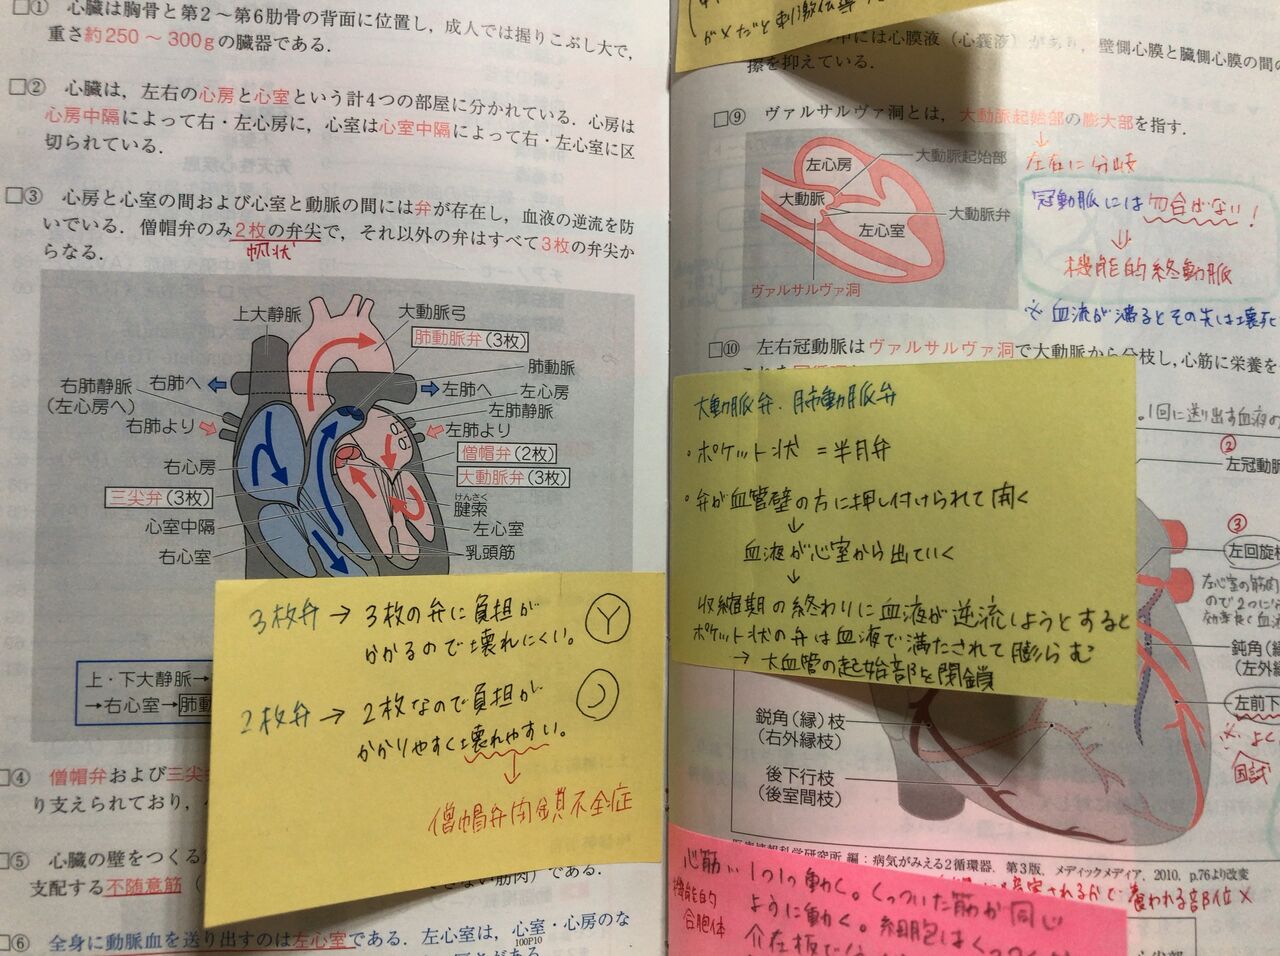 □① 心臓は胸骨と第2～第6肋骨の背面に位置し，成人では握りこぶし大で，
重さ約250～300gの臓器である．
□② 心臓は，左右の心房と心室という計4つの部屋に分かれている．心房は
心房中隔によって右・左心房に，心室は心室中隔によって右・左心室に区
切られている．
□③ 心房と心室の間および心室と動脈の間には弁が存在し，血液の逆流を防
いでいる．僧帽弁のみ2枚の弁尖で，それ以外の弁はすべて3枚の弁尖か
帆状
らなる．
上大静脈
大動脈弓
肺動脈弁(3枚)
肺動脈
右肺静脈
(左心房へ)
右肺へ
左肺へ
左心房
左肺静脈
右肺より
左肺より
僧帽弁(2枚)
右心房
大動脈弁(3枚)
三尖弁(3枚)
けんさく
腱索
心室中隔
左心室
右心室
乳頭筋
上・下大静脈→
→右心室→肺動
3枚弁→3枚の弁に負担が
かかるので壊れにくい。
2枚弁→2枚なので負担が
かかりやすく壊れやすい。
↓
僧帽弁閉鎖不全症
□④ 僧帽弁および三尖
り支えられており，
□⑤ 心臓の壁をつくる
支配する不随意筋（
きない筋肉）である．
□⑥ 全身に動脈血を送り出すのは左心室である．左心室は，心室・心房のな
100P10
がxだと刺激伝導
中には心膜液（心嚢液）があり，壁側心膜と臓側心膜の間の
擦を抑えている．
□⑨ ヴァルサルヴァ洞とは，大動脈起始部の膨大部を指す．
↓
左右に分岐
左心房
大動脈起始部
大動脈
大動脈弁
左心室
ヴァルサルヴァ洞
冠動脈には吻合がない！
⇓
機能的終動脈
※血流が滞るとその先は壊死
□⑩ 左右冠動脈はヴァルサルヴァ洞で大動脈から分枝し，心筋に栄養を
大動脈弁・肺動脈弁
・ポケット状＝半月弁
・弁が血管壁の方に押し付けられて開く
↓
血液が心室から出ていく
↓
収縮期の終わりに血液が逆流しようとすると
ポケット状の弁は血液で満たされて膨らむ
→大血管の起始部を閉鎖
．1回に送り出す血液の
②
左冠動脈
③
左回旋枝
左心室の筋肉
ので2つに
鈍角（縁
（左外縁
左前下
※よく
国試
鋭角（縁）枝
（右外縁枝）
後下行枝
（後室間枝）
編：病気がみえる2循環器．第3版，メディックメディア，2010，p.76より改変
養われる部位×
心筋… 1つ1つ動く。くっついた筋が同じ
機能的
合胞体
ように動く。細胞はくっつ
介在板で